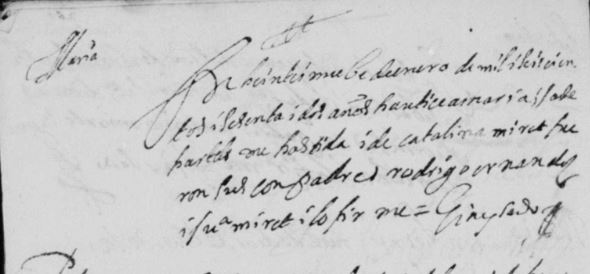 Maria
En beintinuebe de enero de mil i seisien
tos i sesenta i dos años bautice a maria ija de
i de catalina miret fue
ron sus conpadres rodrigo ernandes
i ju^a miret i lo firme =